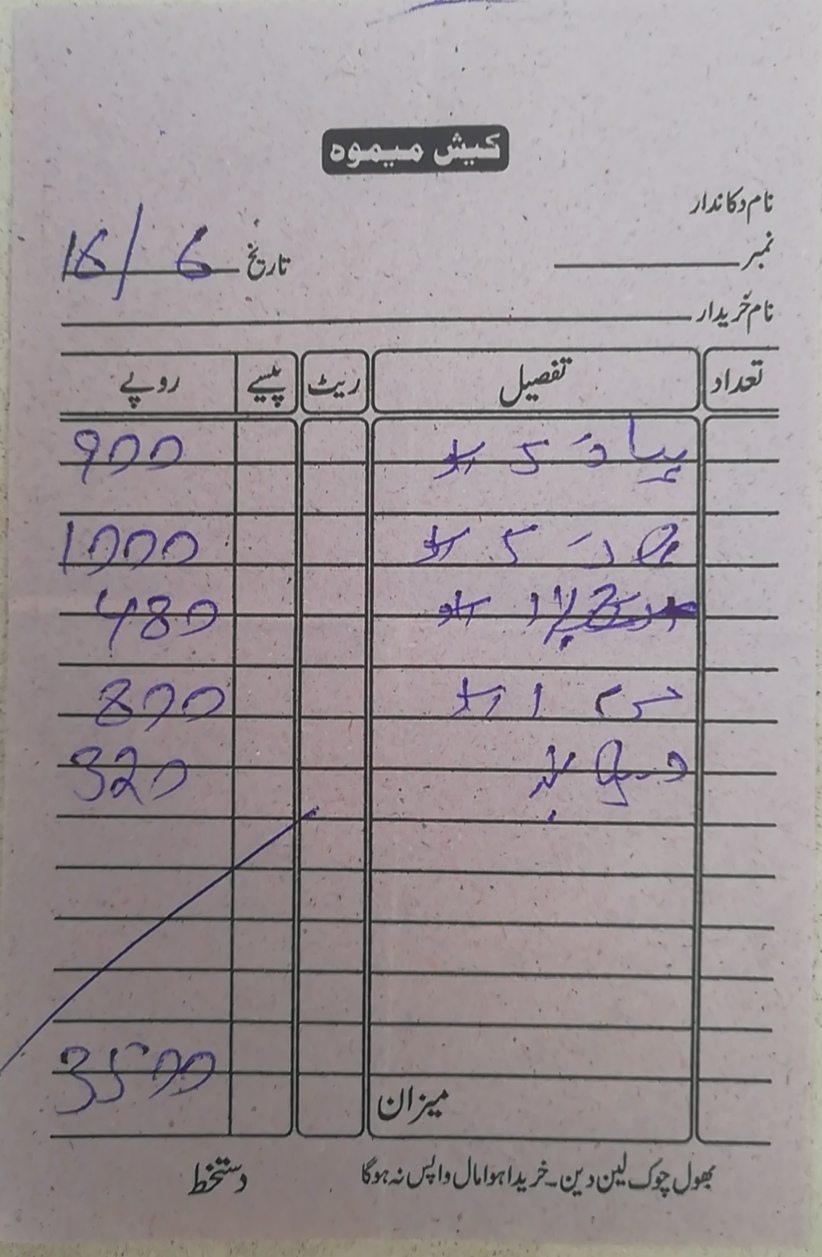 کیش میمو
نام دکاندار
نمبر
تاریخ 16/6
نام خریدار
تعداد تفصیل ریٹ پیسے روپے
پیاز 5 900
5 1000
480
1 800
320
میزان 3500
بھول چوک لین دین۔ خریدا ہوا مال واپس نہ ہوگا دستخط